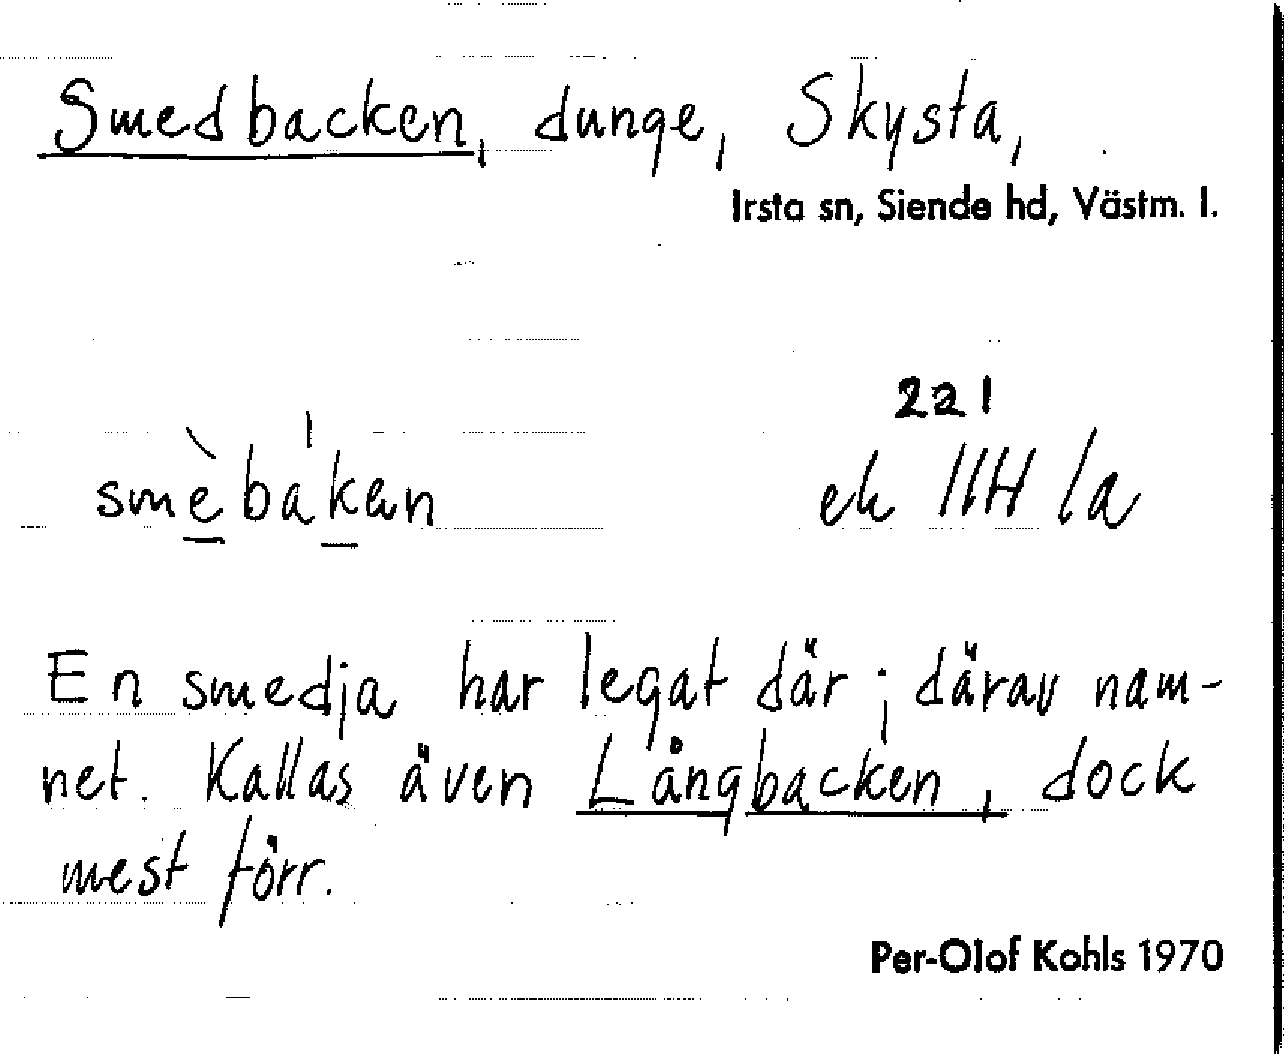 Smedbacken, dunge, Skysta,
Irsta sn, Siende hd, Västm. l.
221
smèba'ken ek
En smedja har legat där; därav nam-
net. Kallas även Långbacken, dock
mest förr.
Per-Olof Kohls 1970